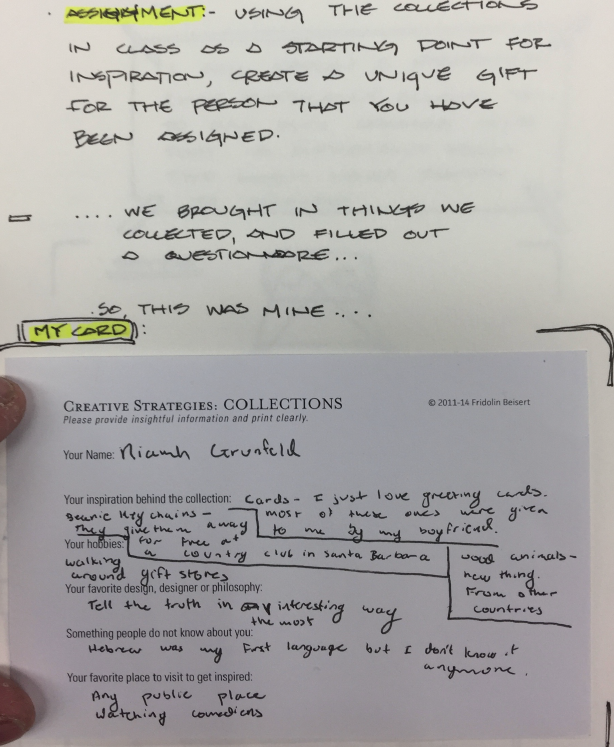 · ASSIGNMENT:- USING THE COLLECTIONS
IN CLASS AS A STARTING POINT FOR
INSPIRATION, CREATE A UNIQUE GIFT
FOR THE PERSON THAT YOU HAVE
BEEN ASSIGNED.
.... WE BROUGHT IN THINGS WE
COLLECTED, AND FILLED OUT
A QUESTIONNAIRE...
.SO, THIS WAS MINE....
MY CARD:
CREATIVE STRATEGIES: COLLECTIONS
© 2011-14 Fridolin Beisert
Please provide insightful information and print clearly.
Your Name: Niamh Grunfeld
Your inspiration behind the collection: Cards - I just love greeting cards.
most of these ones were given
to me by my boyfriend.
key chains -
They give them away
for free at
a country club in Santa Barbara
wood animals -
new thing.
From other
countries
Your hobbies:
walking
around gift stores
Your favorite design, designer or philosophy:
Tell the truth in interesting way
the most
Something people do not know about you:
Hebrew was my first language but I don't know it
anymore.
Your favorite place to visit to get inspired:
Any public place
watching comedians